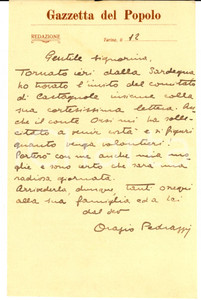 Gazzetta del Popolo
REDAZIONE
Torino, il 12
Gentile signorina,
Tornato ieri dalla Sardegna
ho trovato l'invito del comitato
di Castagnole insieme colla
sua cortesissima lettera. An
che il conte Orsi mi ha solle
citato a venir costà e si figuri
quanto vengo volontieri!
Porterò con me anche mia mo
glie e sono certo che sarà una
radiosa giornata.
Arrivederla dunque, tanti ossequi
alla sua famiglia ed a lei
dal suo
Orazio Pedrazzi